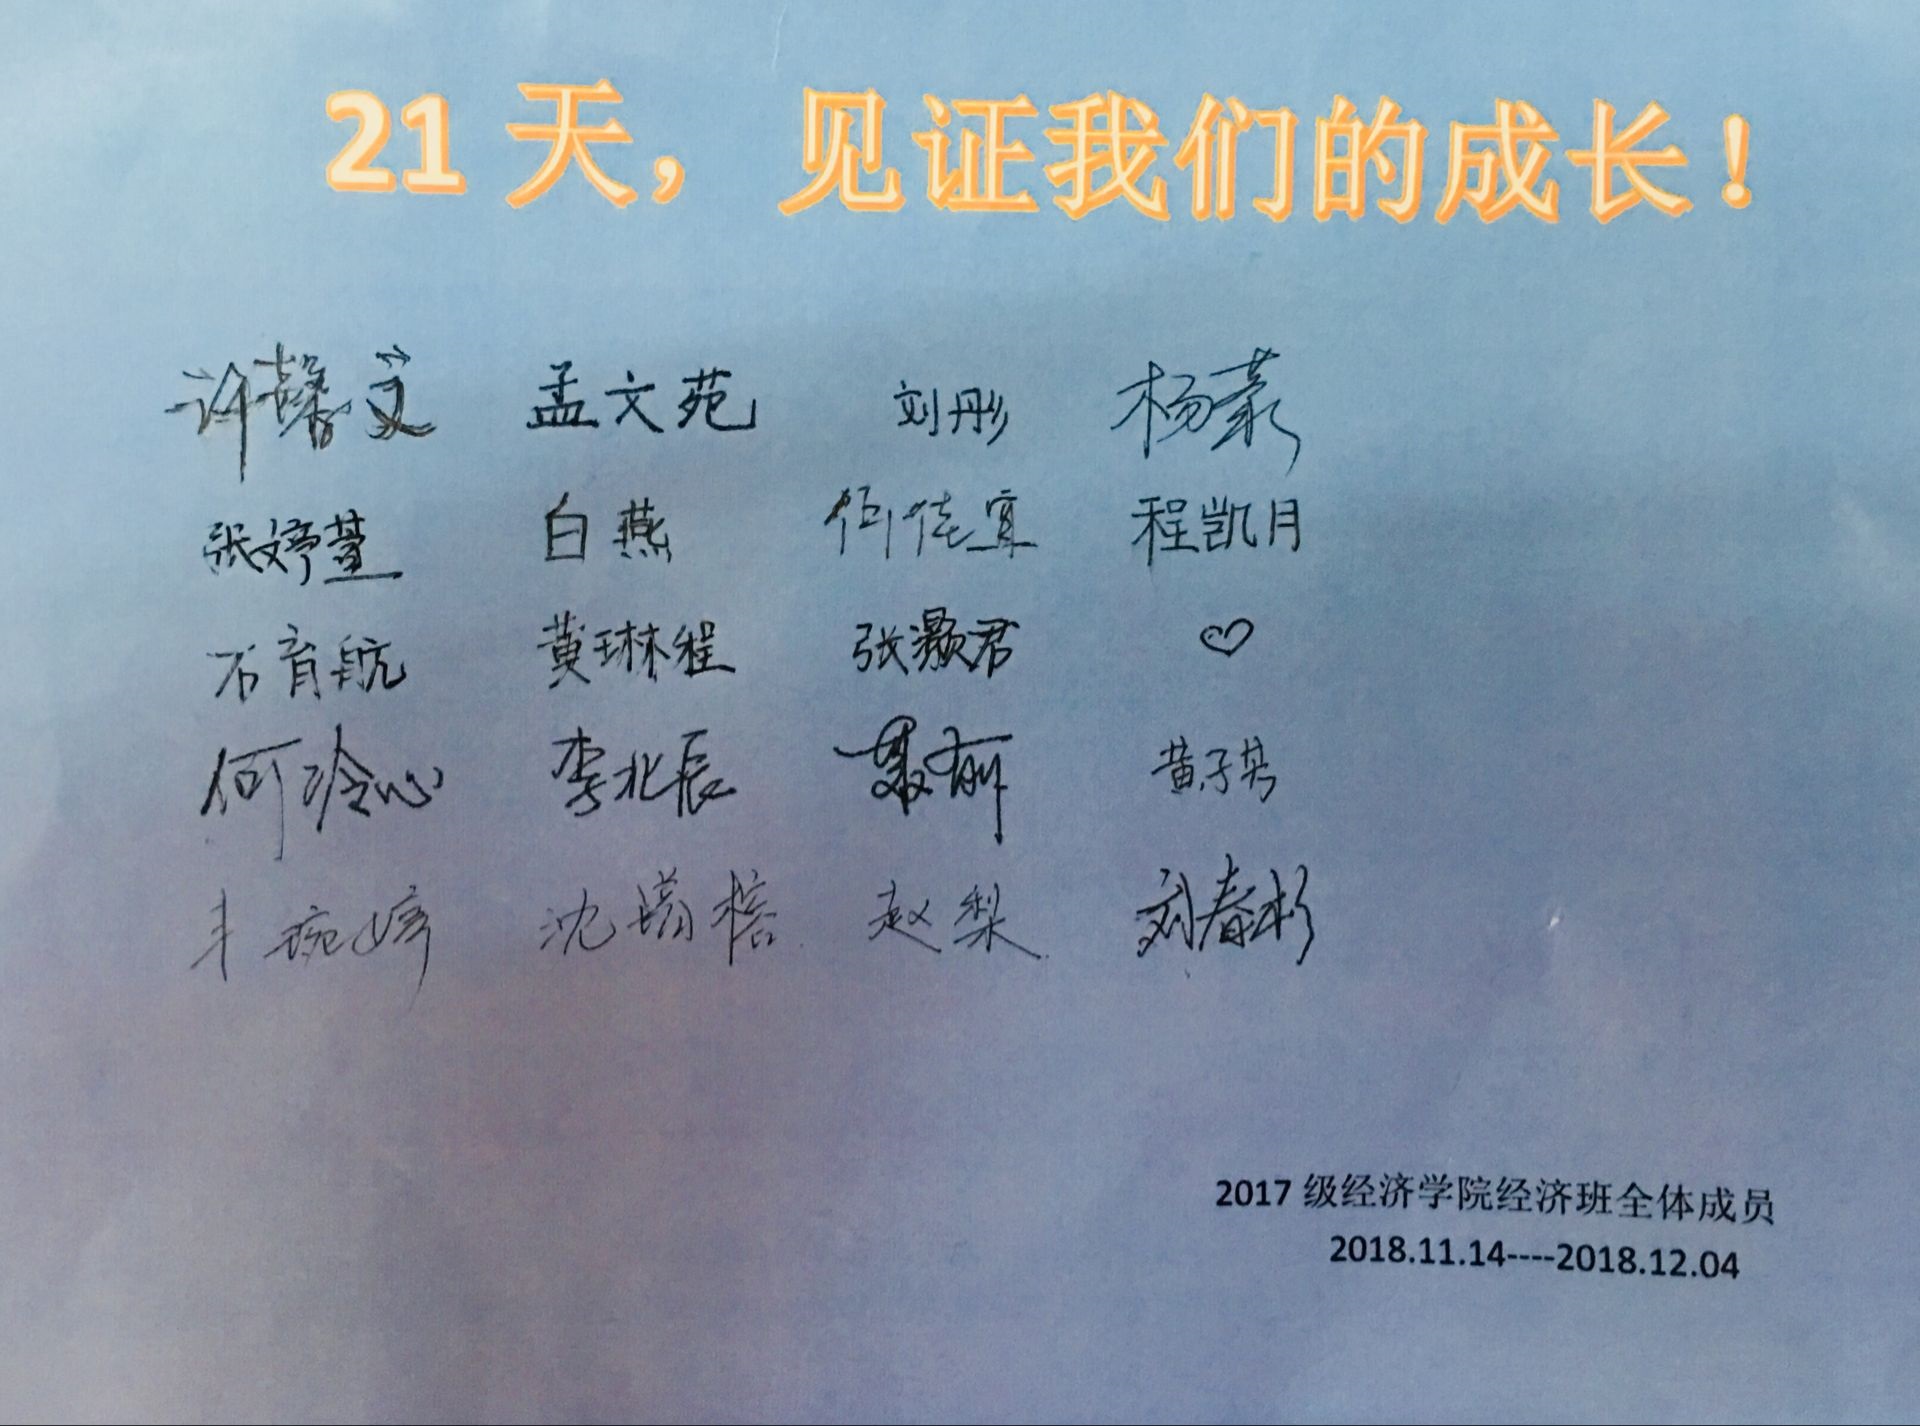 21天，见证我们的成长！
许馨文 孟文苑 刘彤 杨蒙
张婷萱 白燕 何佳宜 程凯月
石育航 黄琳程 张灏君
何冷心 李北辰 黄子芮
沈 榕 赵梨 刘春杉
2017级经济学院经济班全体成员
2018.11.14----2018.12.04